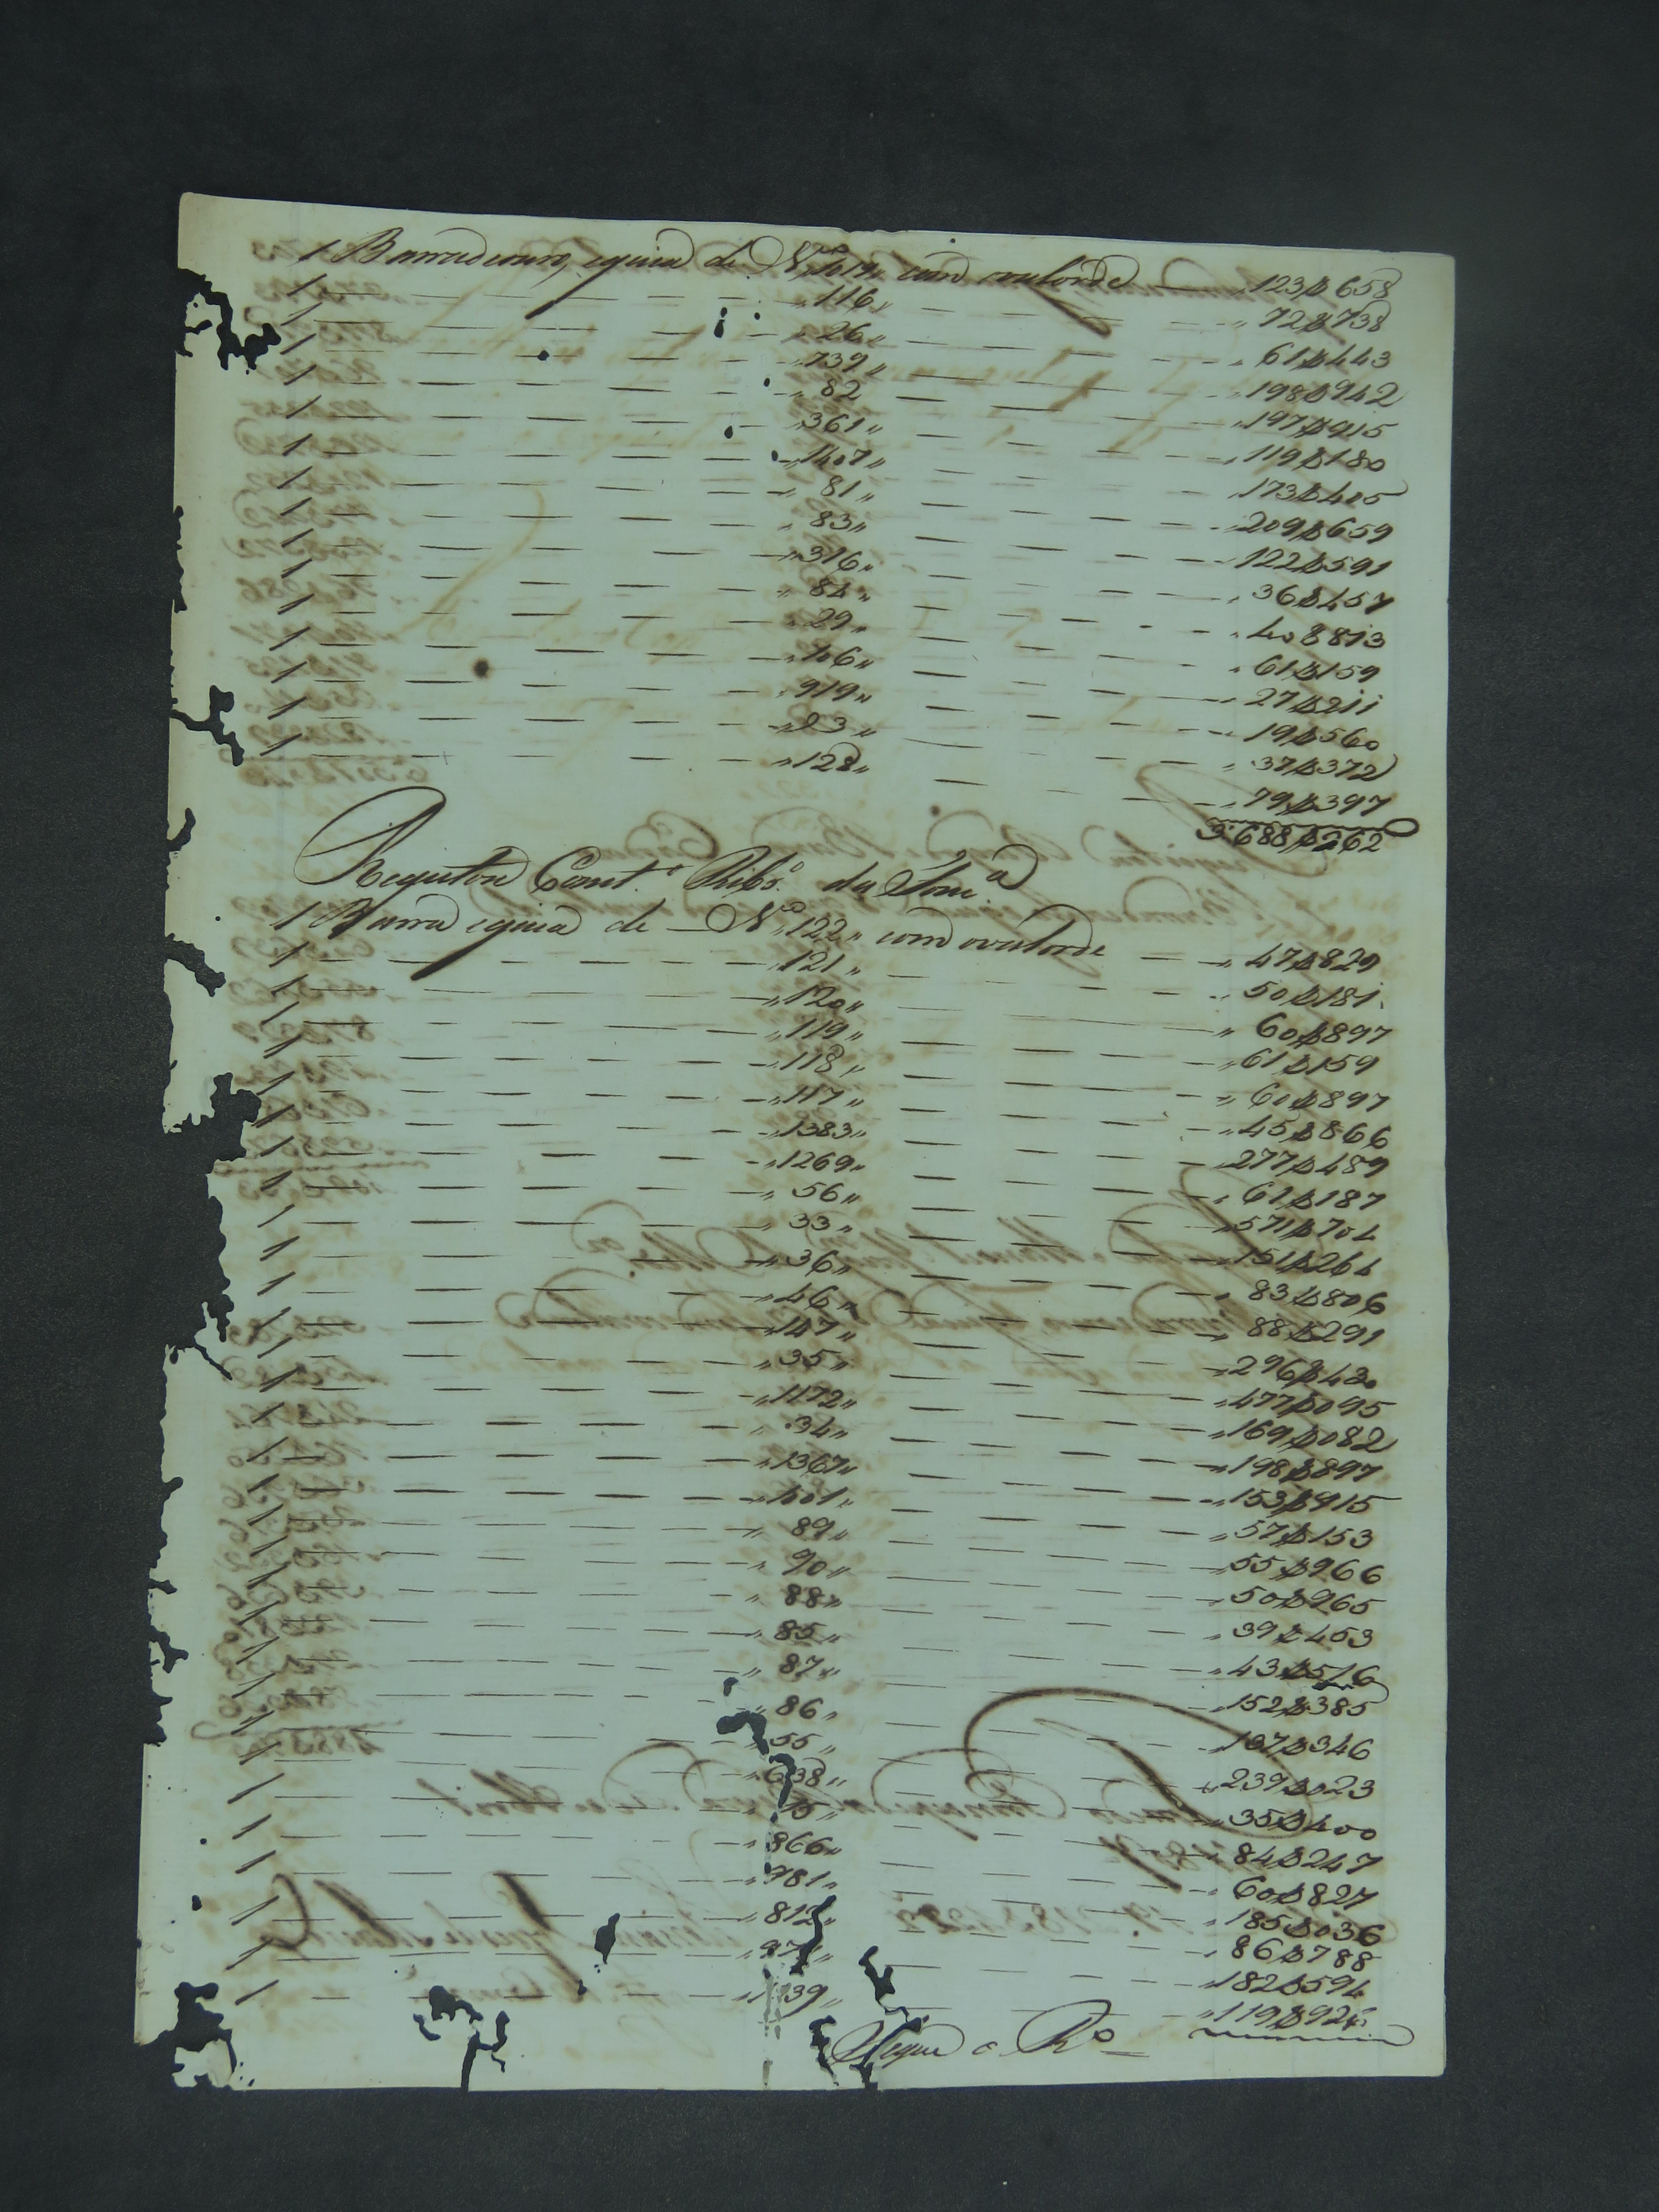 1 Barra de ouro, eguia de N.º 1019 com o valor de 123$658
1 — " 116 " — 72$738
1 — " 26 " — 61$443
1 — " 739 " — 198$942
1 — " 82 — 197$915
1 — " 361 " — 119$180
1 — " 1407 " — 173$405
1 — " 81 " — 209$659
1 — " 83 " — 122$591
1 — " 316 " — 36$457
1 — " 84 " — 40$813
1 — " 29 " — 61$159
1 — " 106 " — 27$211
1 — " 919 " — 19$560
1 — " 23 " — 37$372
1 — " 128 " — 79$397
3:688$262
Registou Const.º Rib.º da Fon.ca
1 Barra eguia de N.º 122 " com o valor de " 47$829
1 — " 121 " — " 50$181
1 — " 120 " — " 60$897
1 — " 119 " — " 61$159
1 — " 118 " — " 60$897
1 — " 117 " — " 45$866
1 — " 1383 " — 277$489
1 — " 1269 " — " 62$187
1 — " 56 " — " 571$704
1 — " 33 " — 151$264
1 — " 36 " — " 83$806
1 — " 46 " — " 88$291
1 — " 147 " — 296$430
1 — " 35 " — " 477$095
1 — " 1172 " — " 169$082
1 — " 34 " — " 198$897
1 — " 1367 " — " 153$915
1 — " 1001 " — " 57$153
1 — " 89 " — 55$966
1 — " 90 " — " 50$965
1 — " 88 " — " 39$453
1 — " 85 " — " 43$516
1 — " 87 " — " 152$385
1 — " 86 " — " 137$346
1 — " 55 " — " 239$023
1 — " 638 " — " 35$400
1 — " — " 84$247
1 — " 866 " — " 60$827
1 — " 981 " — " 185$036
1 — " 812 " — " 86$788
1 — " — " 182$594
1 — " — " 119$924
Segue a R.º